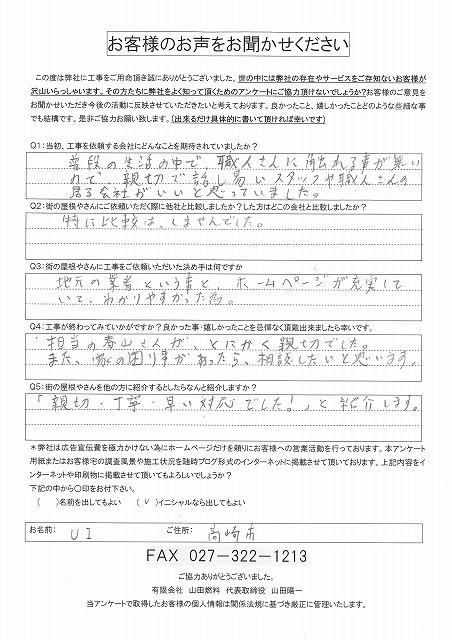 お客様のお声をお聞かせください
この度は弊社に工事をご用命頂き誠にありがとうございました。世の中には弊社の存在やサービスをご存知ないお客様が
沢山いらっしゃいます。その方たちに弊社をよく知って頂くためのアンケートにご協力頂けないでしょうか?お客様のご意見を
お聞かせいただき今後の活動に反映させていただきたいと考えております。良かったこと、嬉しかったことどのような些細な事
でも結構です。是非ご協力お願い致します。(出来るだけ具体的に書いて頂ければ幸いです)
Q1:当初、工事を依頼する会社にどんなことを期待されていましたか?
普段の生活の中で、職人さんに触れる事が無い
ので、親切で話し易いスタッフや職人さんの
居る会社がいいと思っていました。
Q2:街の屋根やさんにご依頼いただく際に他社と比較しましたか?した方はどこの会社と比較しましたか?
特に比較は、しませんでした。
Q3:街の屋根やさんに工事をご依頼いただいた決め手は何ですか
地元の業者という事と、ホームページが充実して
いて、わかりやすかった為。
Q4:工事が終わってみていかがですか?良かった事・嬉しかったことを忌憚なく頂戴出来ましたら幸いです。
担当の春山さんが、とにかく親切でした。
また、家の困り事があったら、相談したいと思います。
Q5:街の屋根やさんを他の方に紹介するとしたらなんと紹介しますか?
「親切・丁寧・早い対応でした!」と紹介します。
*弊社は広告宣伝費を極力かけない為にホームページだけを頼りにお客様への営業活動を行っております。本アンケート
用紙またはお客様宅の調査風景や施工状況を随時ブログ形式のインターネットに掲載させて頂いております。上記内容をイ
ンターネットや印刷物に掲載させて頂いてもよろしいでしょうか?
下記の中から〇印をお付下さい。
( )名前を出してもよい (∨)イニシャルなら出してもよい
お名前: U I ご住所: 高崎市
FAX 027-322-1213
ご協力ありがとうございました。
有限会社 山田燃料 代表取締役 山田陽一
当アンケートで取得したお客様の個人情報は関係法規に基づき厳正に管理いたします。